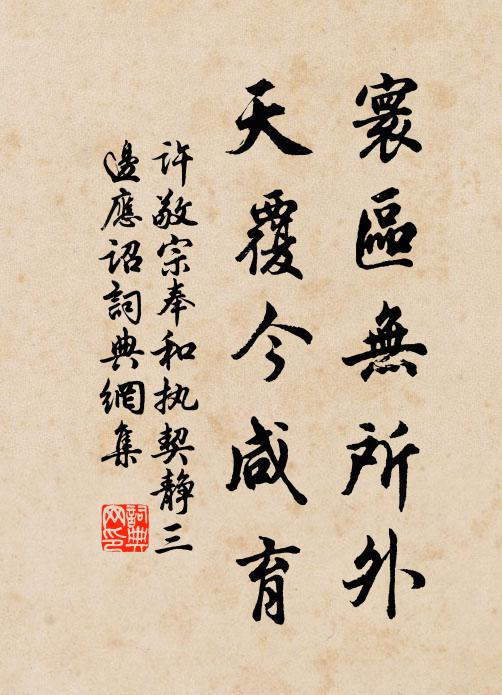 寰區無所外
天覆今咸育
许敬宗奉和执契静三
邊應詔詞典網集
詞典网印